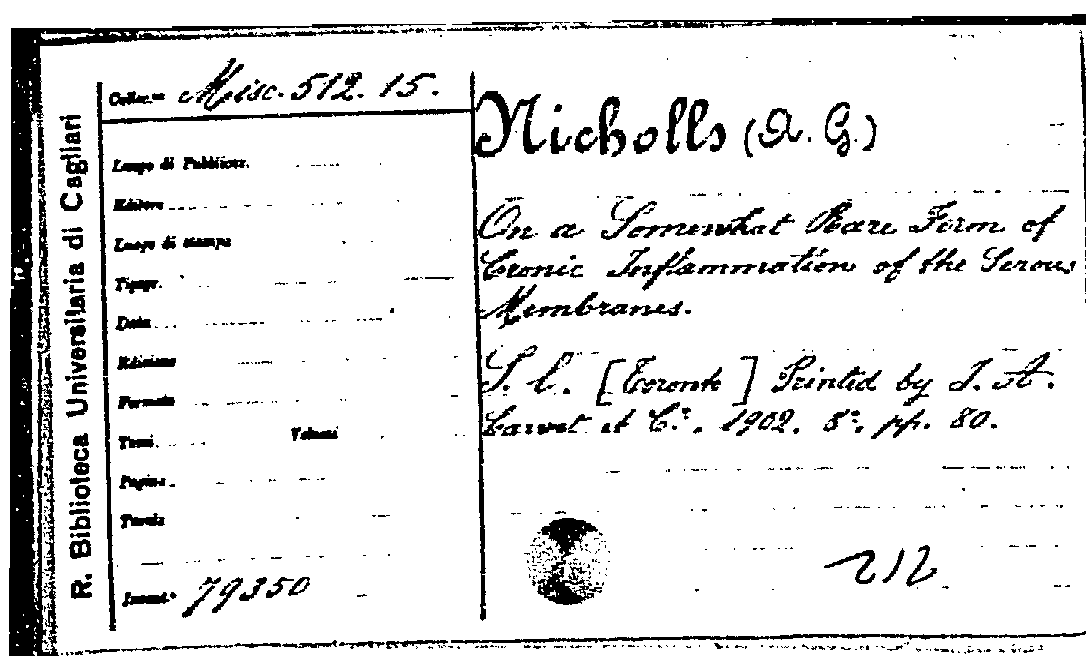 R. Biblioteca Universitaria di Cagliari
Colloc.ne Misc. 512. 15.
Luogo di Pubblicaz.
Editore
Luogo di stampa
Tipogr.
Data
Edizione
Formato
Tomi Volumi
Pagine
Tavole
Invent.° 79350
Nicholls (A. G.)
On a Somewhat Rare Form of
Cronic Inflammation of the Serous
Membranes.
S. l. [Toronto] Printed by J. A.
et C.°. 1902. 8°. pp. 80.
212